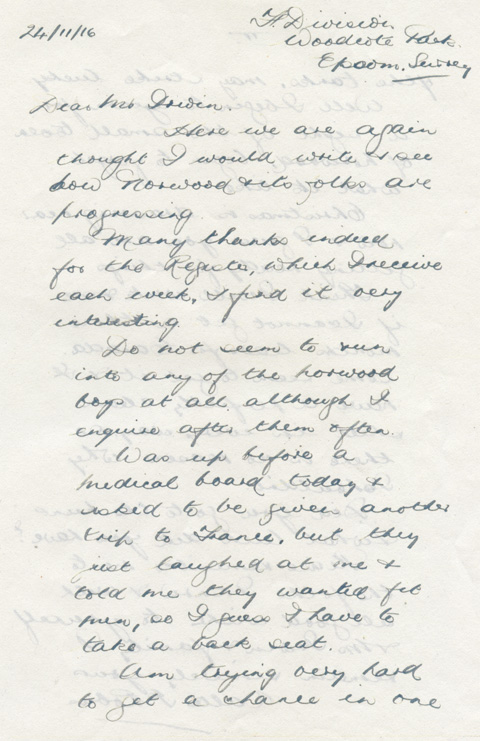 24/11/16
F. Division
Woodcote Park.
Epsom. Surrey
Dear Mr Irwin.
Here we are again
thought I would write & see
how Norwood & its folks are
progressing.
Many thanks indeed
for the Register, which I receive
each week, I find it very
interesting.
Do not seem to run
into any of the norwood
boys at all although I
enquire after them often.
Was up before a
medical board today &
asked to be given another
trip to France, but they
just laughed at me &
told me they wanted fit
men, so I guess I have to
take a back seat.
Am trying very hard
to get a chance in one